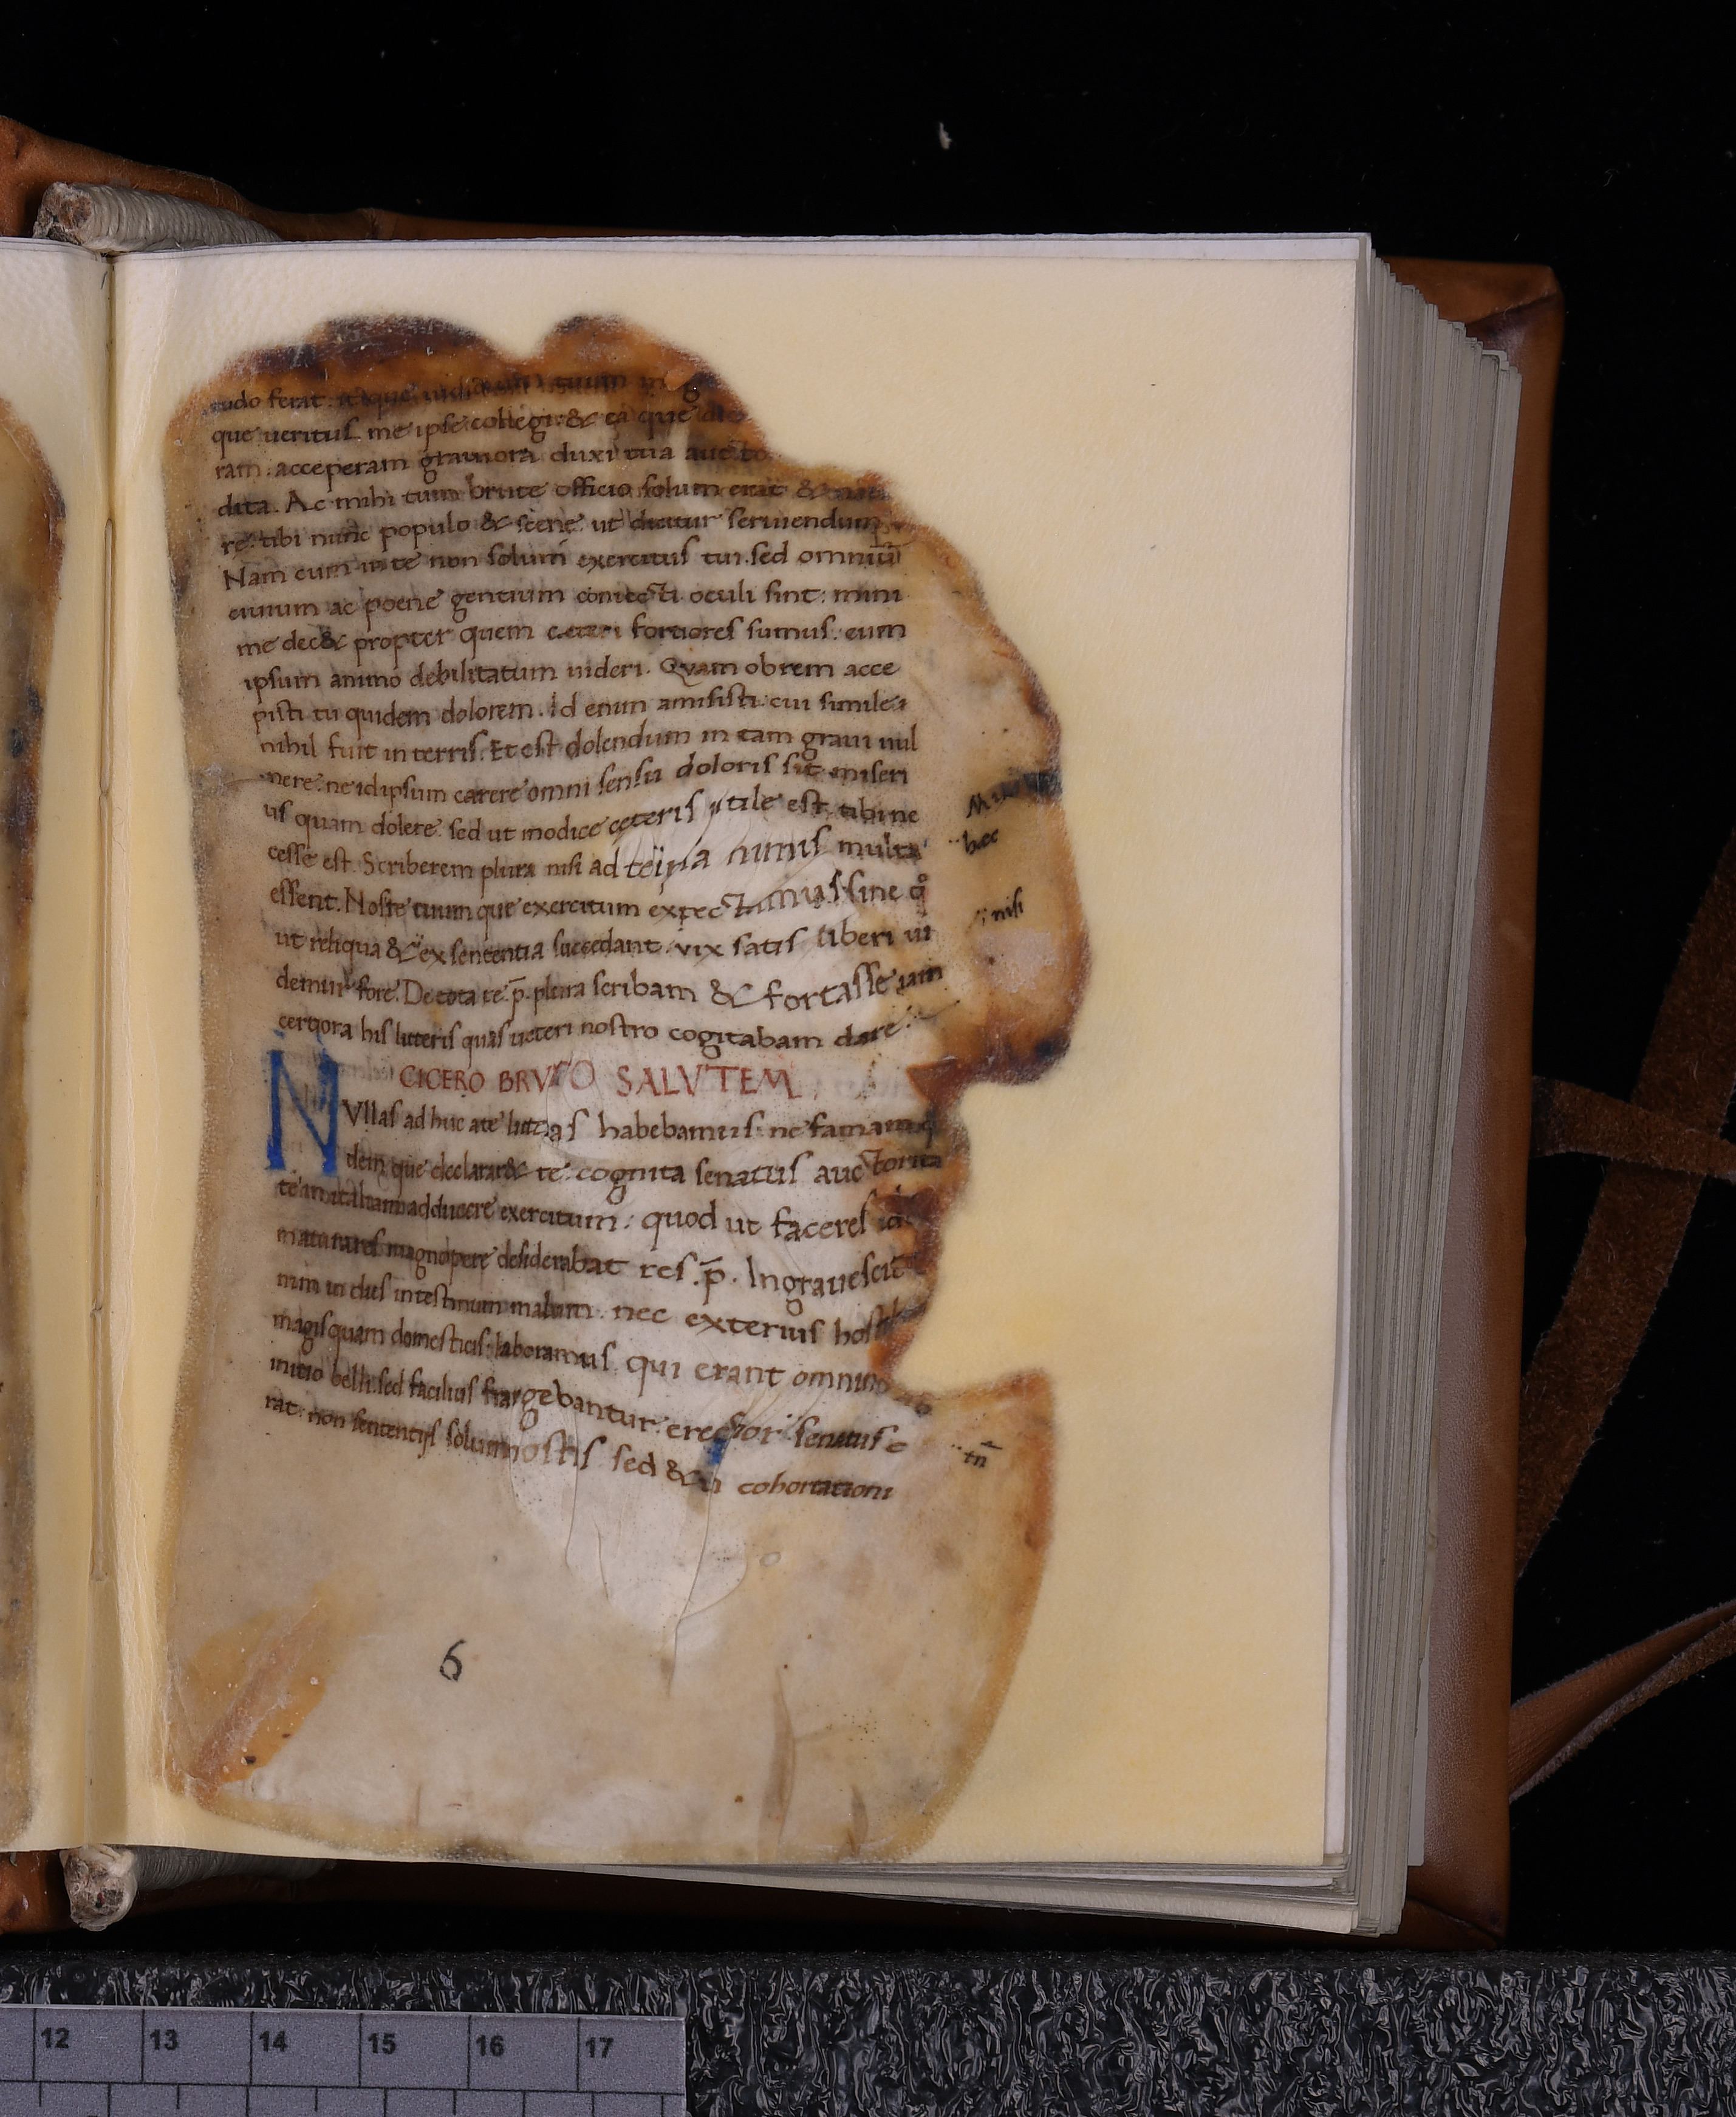 tudo ferat. itaque iudicium tuum
que ueritus. me ipse collegi. & ea que
ram. acceperam grauiora duxi tua aucto
dita. Ac mihi tum brute officio solum erat &
re. tibi nunc populo & scene ut dicitur seruiendum
Nam cum in te non solum exercitus tui. sed omniū
ciuium ac poene gentium coniecti oculi sint: mini
me dec& propter quem ceteri fortiores sumus. eum
ipsum animo debilitatum uideri. Quam obrem acce
pisti tu quidem dolorem. Id enim amisisti. cui simile
nihil fuit in terris. Et est dolendum in tam graui uul
nere. ne id ipsum carere omni sensu doloris sit miseri
us quam dolere. sed ut modice ceteris utile est. tibi ne
cesse est. Scriberem plura nisi ad te ipsa nimis multa
essent. Nos te tuum que exercitum expectamus. sine q°
ut reliqua & ex sententia succedant. uix satis liberi ui
demur fore. De tota re .p̄. plura scribam & fortasse iam
certiora his litteris quas ueteri nostro cogitabam dare.
Minu
hec
nisi
CICERO BRVTO SALVTEM
NVllas ad huc a te litteras habebamus. ne famam q
dem que declarar& te. cognita senatus auctorita
te in italiam adducere exercitum: quod ut faceres id
maturares magnopere desiderabat res .p̄. Ingrauescit
nim in dies intestinum malum. nec externis hostib
magis quam domesticis. laboramus. qui erant omnino
initio belli. sed facilius frangebantur. erectior senatus e
rat. non sententijs solum nostris sed & cohortationi
tn̄
6
12 13 14 15 16 17